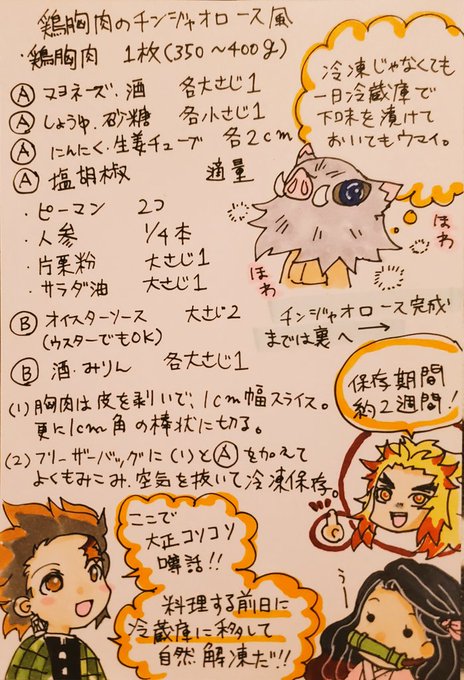 鶏胸肉のチンジャオロース風
・鶏胸肉 1枚(350〜400g)
Ⓐマヨネーズ、酒 各大さじ1
Ⓐしょうゆ、砂糖 各小さじ1
Ⓐにんにく・生姜チューブ 各2cm
Ⓐ塩胡椒 適量
・ピーマン 2コ
・人参 1/4本
・片栗粉 大さじ1
・サラダ油 大さじ1
Ⓑオイスターソース 大さじ2
(ウスターでもOK)
Ⓑ酒・みりん 各大さじ1
冷凍じゃなくても
一日冷蔵庫で
下味を漬けて
おいてもウマイ。
ほわ
ほわ
チンジャオロース完成
までは裏へ→
(1)胸肉は皮を剥いで、1cm幅スライス。
更に1cm角の棒状に切る。
(2)フリーザーバッグに(1)とⒶを加えて
よくもみこみ、空気を抜いて冷凍保存。
保存期間
約2週間!
ここで
大正コソコソ
噂話!!
料理する前日に
冷蔵庫に移して
自然解凍だ!!
うー